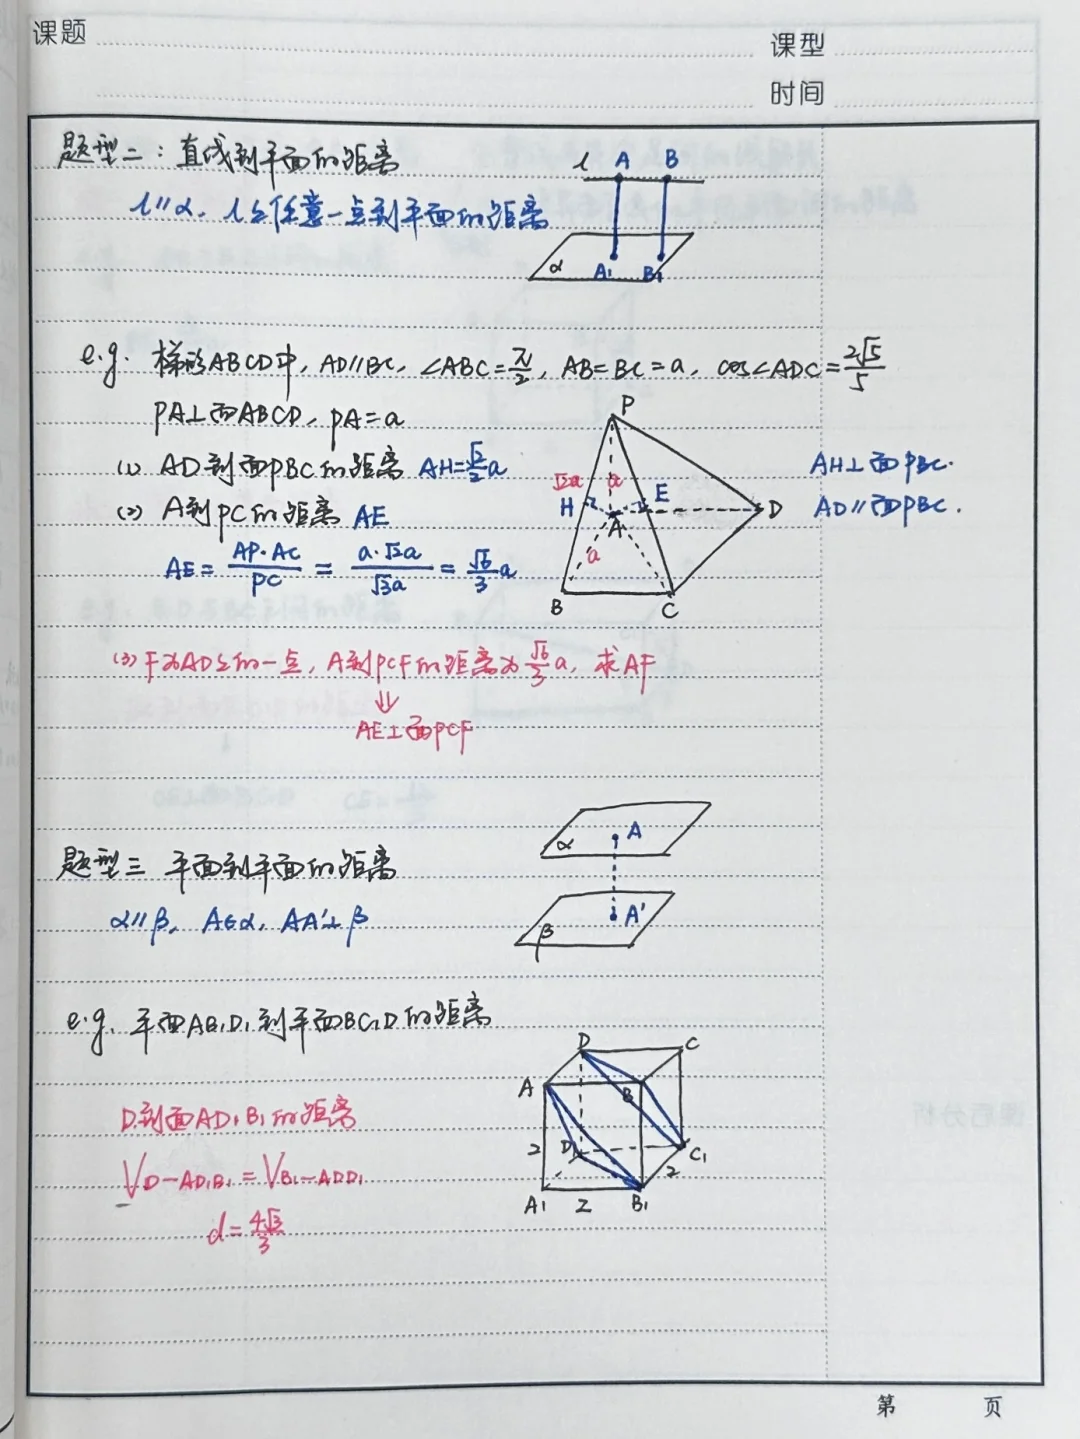 课题
课型
时间
题型二：直线到平面的距离
l∥α，l上任意一点到平面的距离
l A B
α A₁ B₁
e.g. 梯形ABCD中，AD∥BC，∠ABC=π/2，AB=BC=a，cos∠ADC=2√5/5
PA⊥面ABCD，PA=a
(1) AD到面PBC的距离 AH=√2/2 a
(2) A到PC的距离 AE
AE = AP·AC/PC = a·√2a/√3a = √6/3 a
P
√2a a
H E
A D
a
B C
AH⊥面PBC.
AD∥面PBC.
(3) F为AD上的一点，A到PCF的距离为√6/3 a，求AF
⇓
AE⊥面PCF
题型三 平面到平面的距离
α∥β，A∈α，AA'⊥β
α A
β A'
e.g. 平面AB₁D₁到平面BC₁D的距离
D到面AD₁B₁的距离
V D-AD₁B₁ = V B₁-ADD₁
d=4√3/3
D C
A B
2 D₁ C₁
2
A₁ 2 B₁
课后分析
第 页